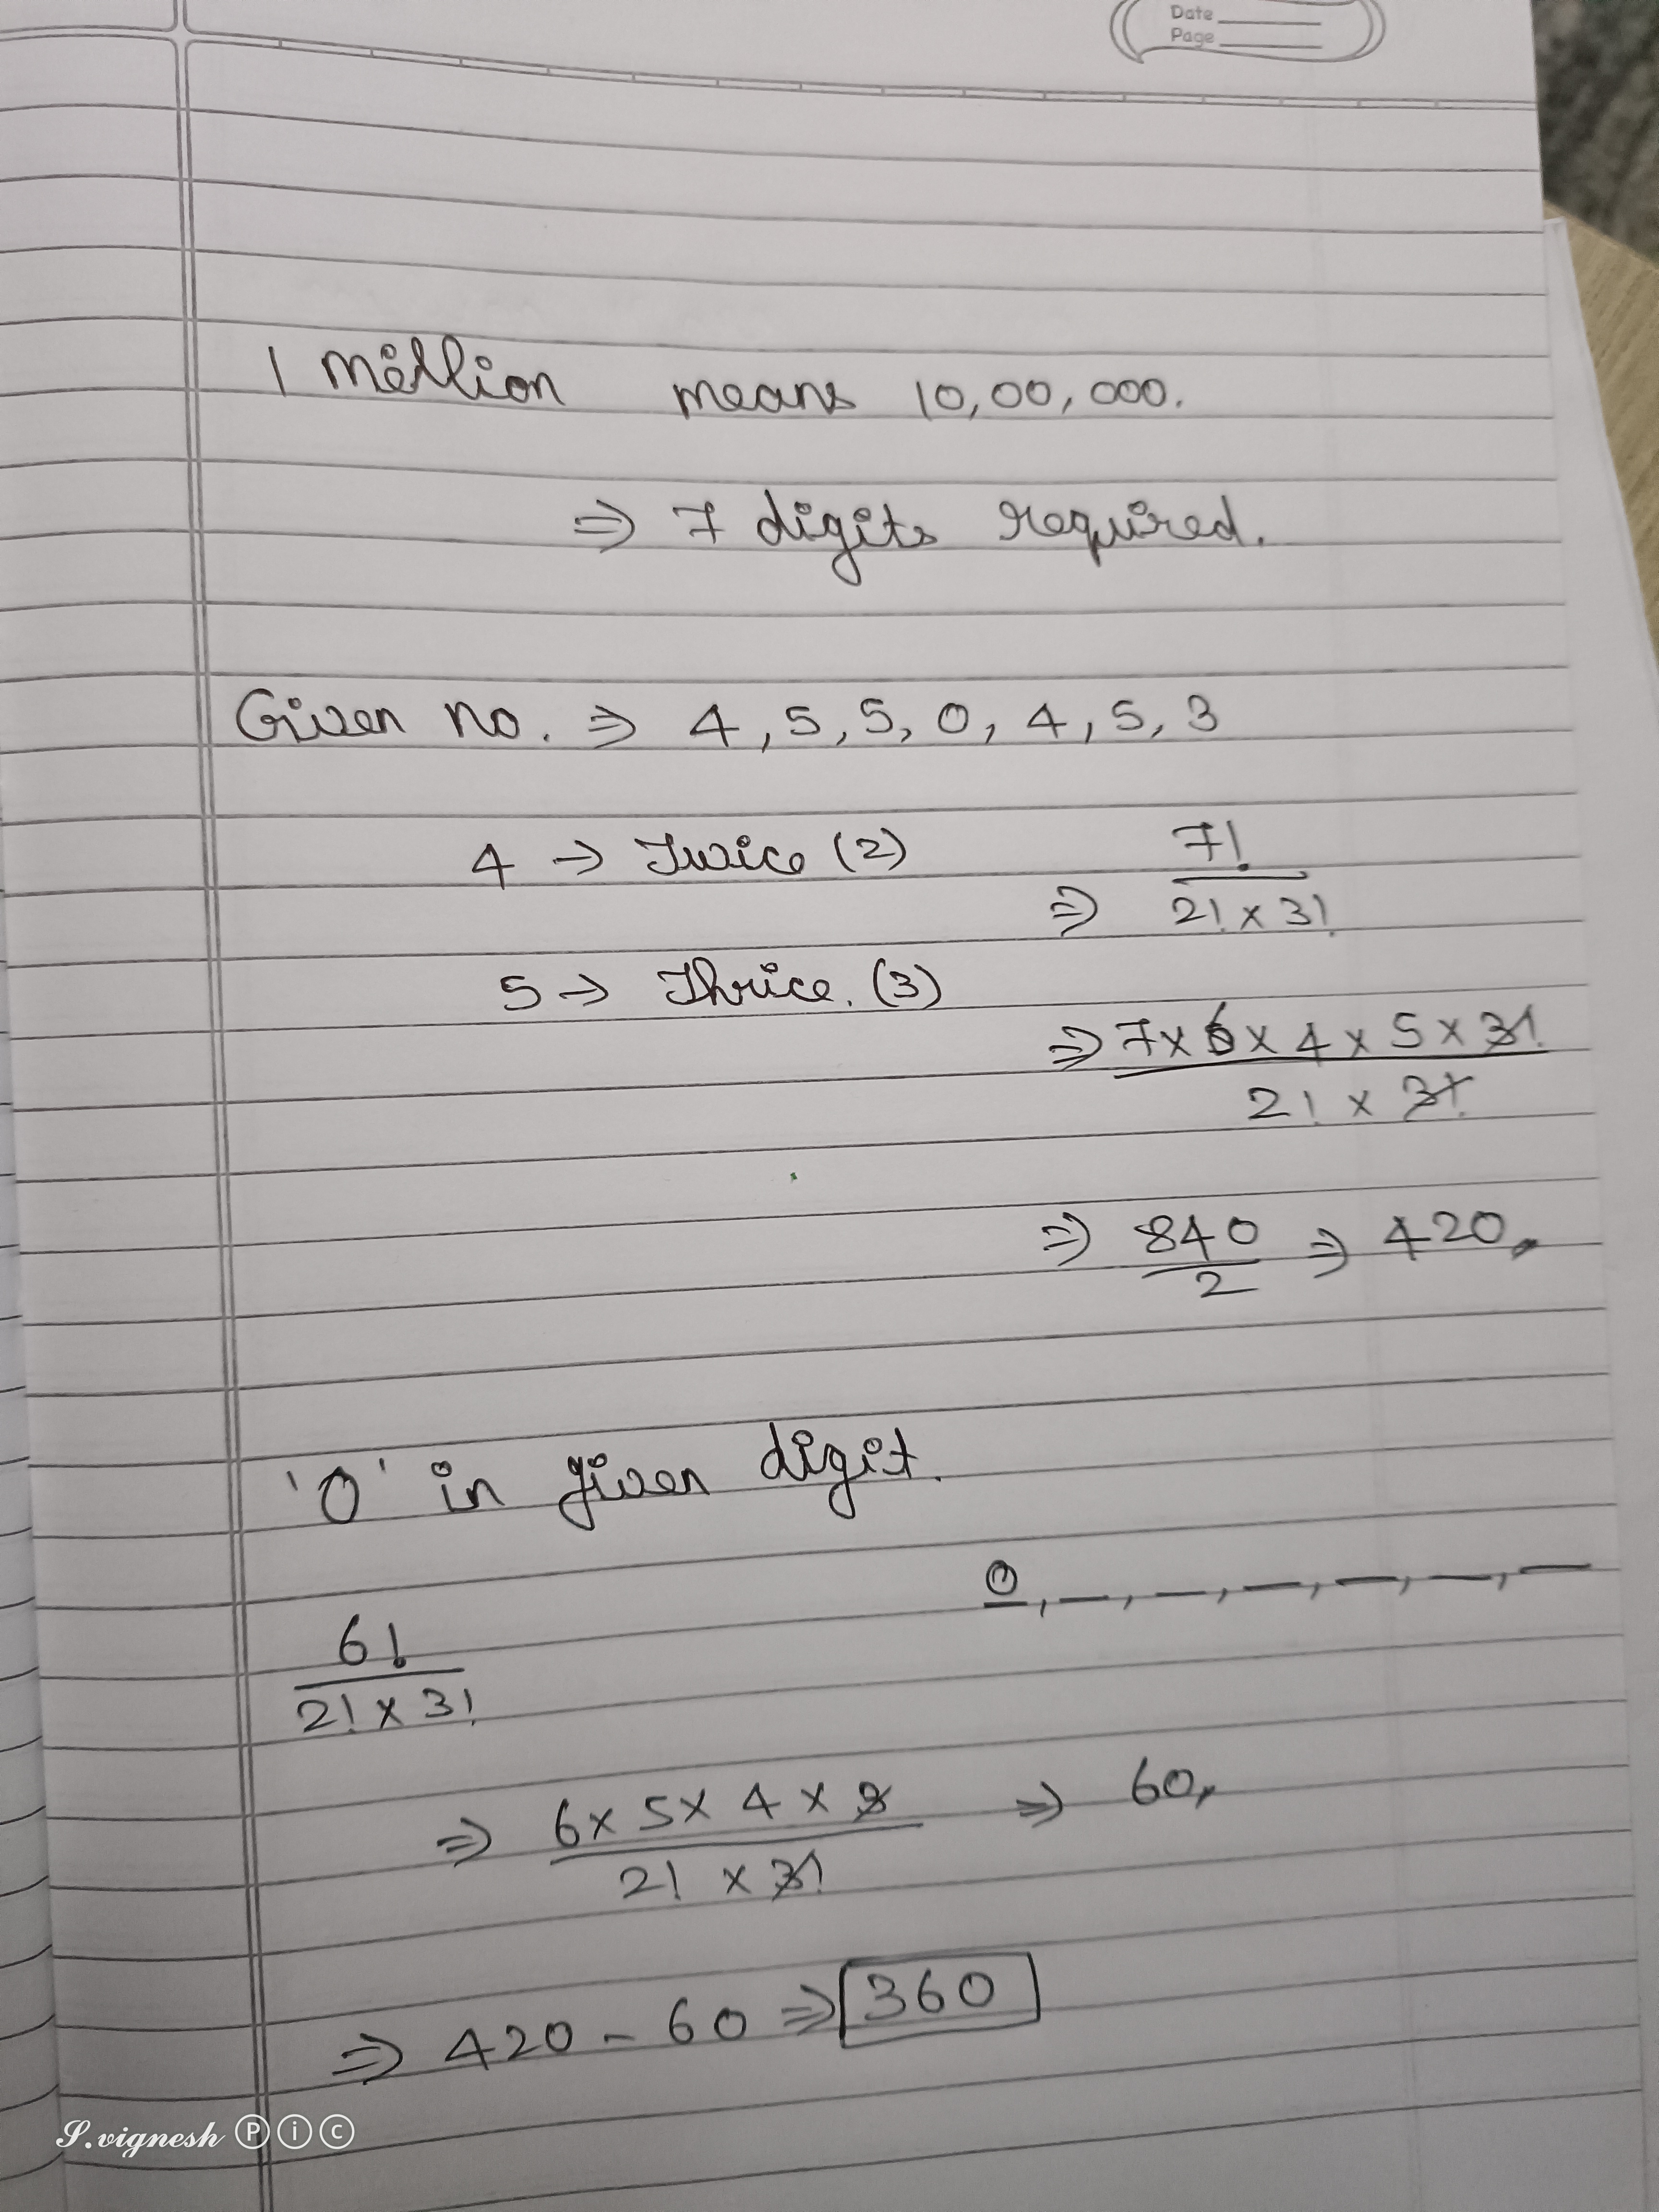 Date
Page
1 Million means 10,00,000.
⇒ 7 digits required.
Given no. ⇒ 4, 5, 5, 0, 4, 5, 3
4 → Twice (2)
⇒ 7! / 2! x 3!
5 → Thrice. (3)
⇒ 7 x 6 x 4 x 5 x 3! / 2! x 3!
⇒ 840 / 2 ⇒ 420
'0' in given digit.
0, _, _, _, _, _, _
6! / 2! x 3!
⇒ 6 x 5 x 4 x 3 / 2! x 3! ⇒ 60
⇒ 420 - 60 ⇒ 360
S.vignesh Ⓟⓘⓒ